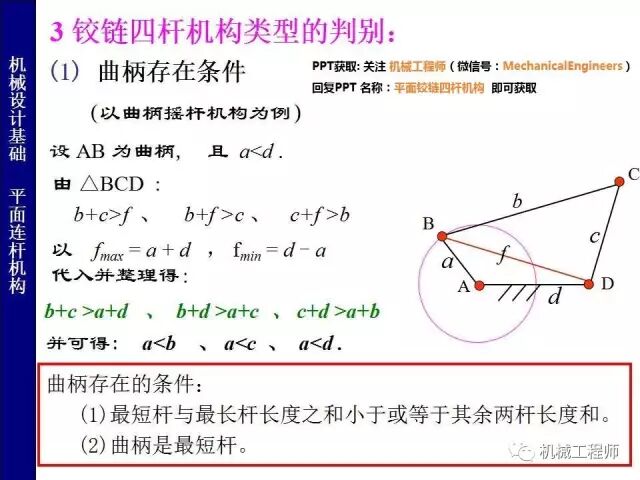 3 铰链四杆机构类型的判别：
(1) 曲柄存在条件
PPT获取: 关注 机械工程师（微信号：MechanicalEngineers）
回复PPT 名称：平面铰链四杆机构 即可获取
(以曲柄摇杆机构为例)
设 AB 为曲柄， 且 a<d .
由 △BCD :
b+c>f 、 b+f >c 、 c+f >b
以 fmax = a + d , fmin = d − a
代入并整理得：
b+c >a+d 、 b+d >a+c 、 c+d >a+b
并可得： a<b 、 a<c 、 a<d .
曲柄存在的条件：
(1)最短杆与最长杆长度之和小于或等于其余两杆长度和。
(2)曲柄是最短杆。
机械设计基础 平面连杆机构
C
b
B
c
f
a
A
D
d
机械工程师